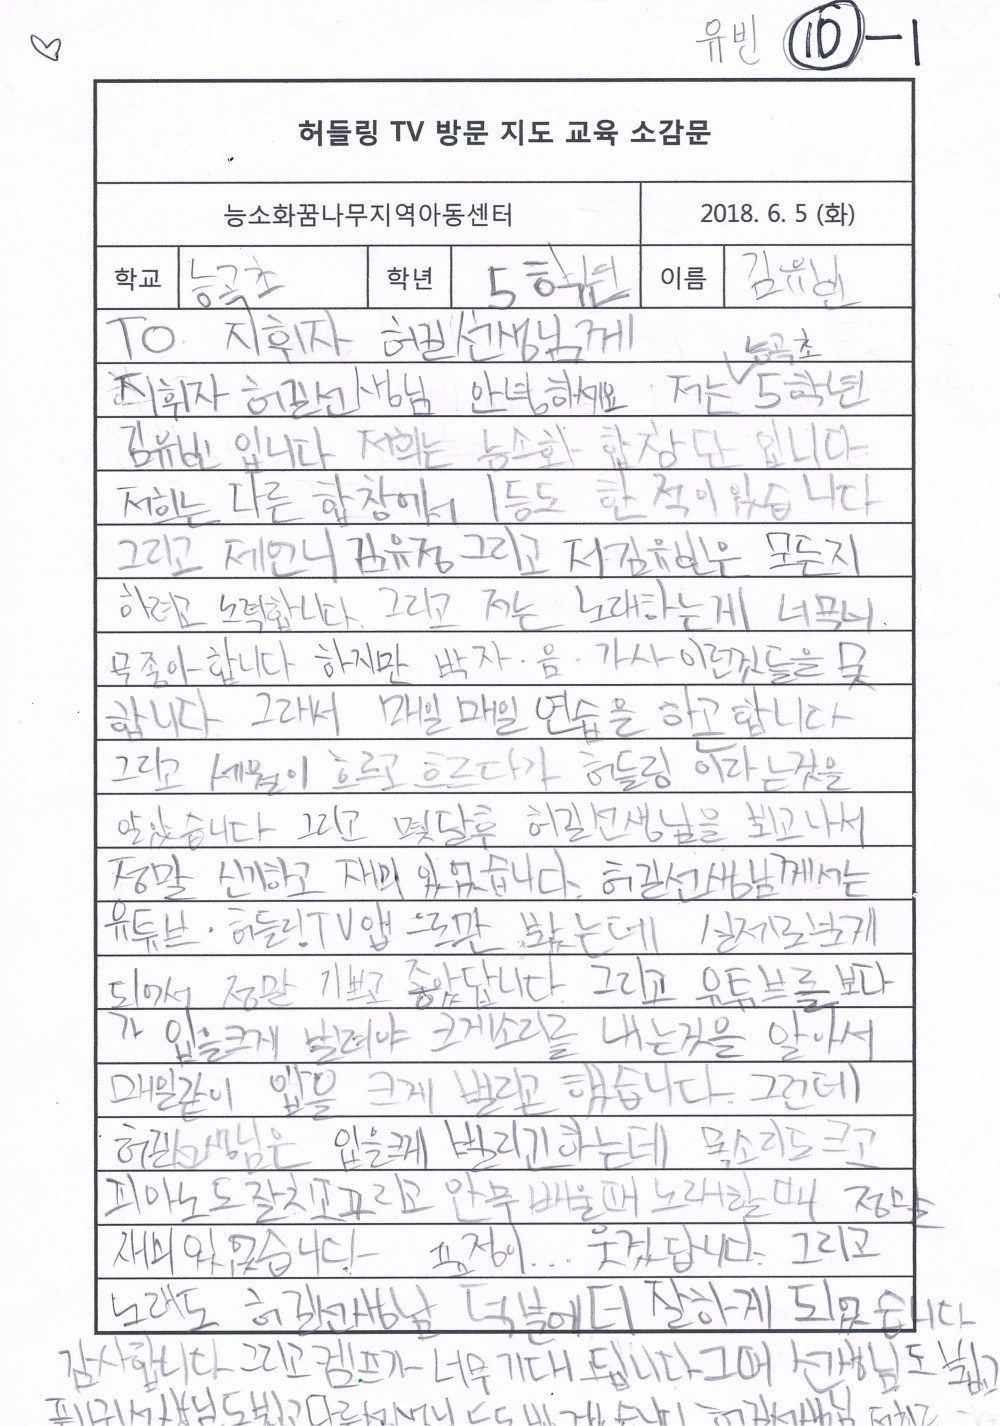 유빈 10-1
허들링 TV 방문 지도 교육 소감문
능소화꿈나무지역아동센터 2018. 6. 5 (화)
학교 능곡초 학년 5학년 이름 김유빈
TO 지휘자 허길선생님께
능곡초
지휘자 허길선생님 안녕하세요 저는 5학년
김유빈 입니다 저희는 능소화 합창단 입니다
저희는 다른 합창에서 1등도 한 적이 있습니다
그리고 제언니 김유정 그리고 저김유빈은 모든지
하려고 노력합니다. 그리고 저는 노래하는게 너무너
무좋아합니다 하지만 박자·음·가사이런것들을 못
합니다 그래서 매일매일 연습을 하고합니다
그리고 세월이 흐르고 흐르다가 허들링 이라는것을
알았습니다 그리고 몇달후 허길선생님을 뵈고나서
정말 신기하고 재미 있었습니다. 허길선생님께서는
유튜브·허들링TV앱 으로만 봤는데 실제로보게
되어서 정말 기쁘고 좋았답니다. 그리고 유튜브를 보다
가 입을크게 벌려야 크게소리를 내는것을 알아서
매일같이 입을 크게 벌리고 했습니다. 그런데
허길선생님은 입을크게 벌리긴하는데 목소리도크고
피아노도잘치고그리고 안무 배울때 노래할때 정말
재미있었습니다 표정이... 웃겼답니다. 그리고
노래도 허길선생님 덕분에더 잘하게 되었습니다
감사합니다 그리고 켐프가 너무 기대 됩니다 선생님도 뵙고